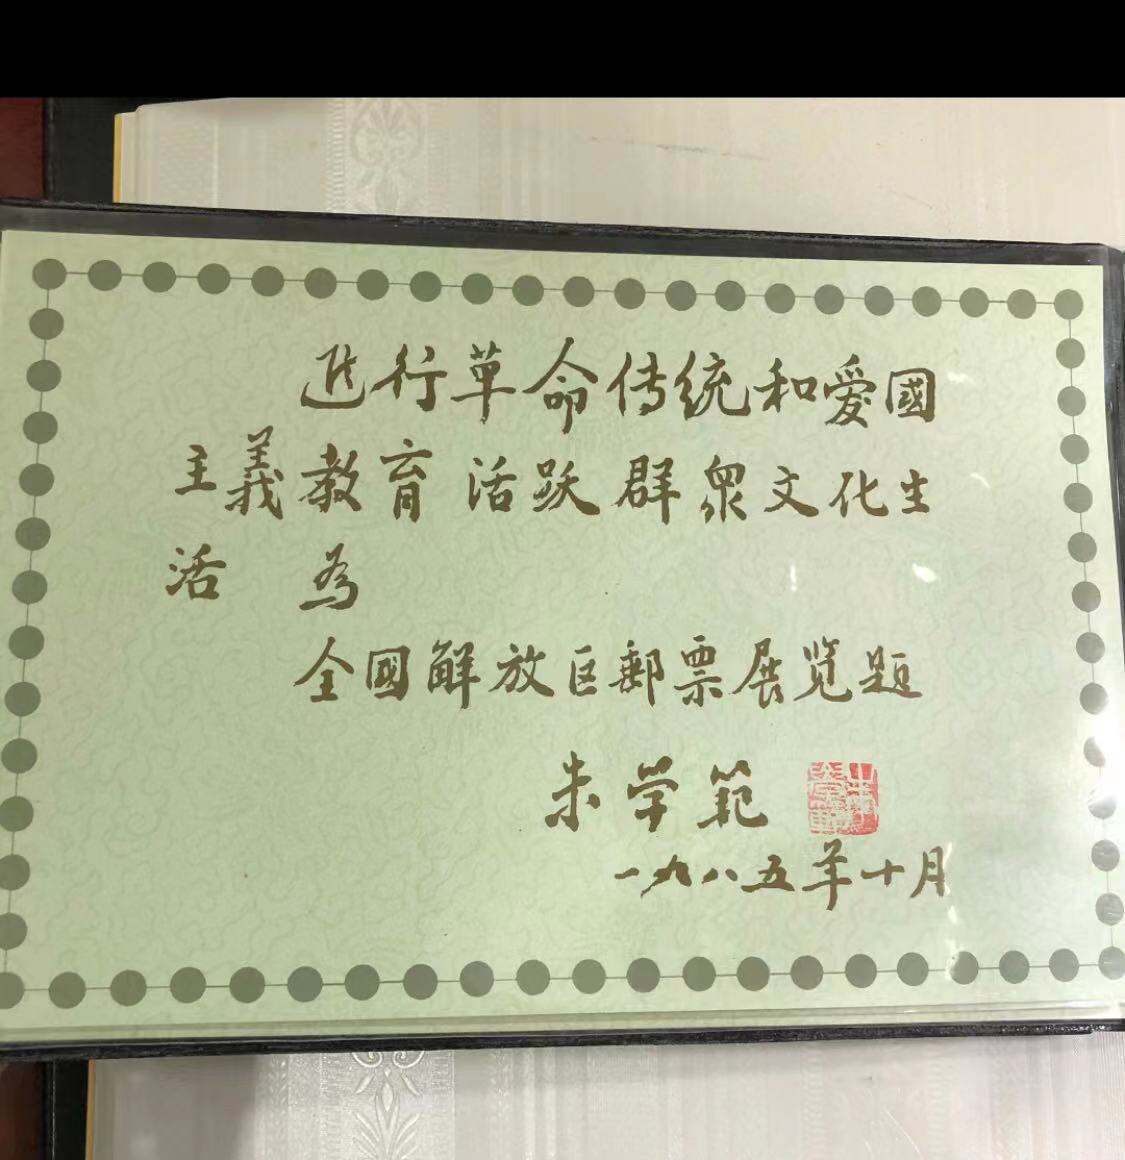 进行革命传统和爱國
主義教育活跃群衆文化生
活 為
全國解放区郵票展览题
朱学範
一九八五年十月